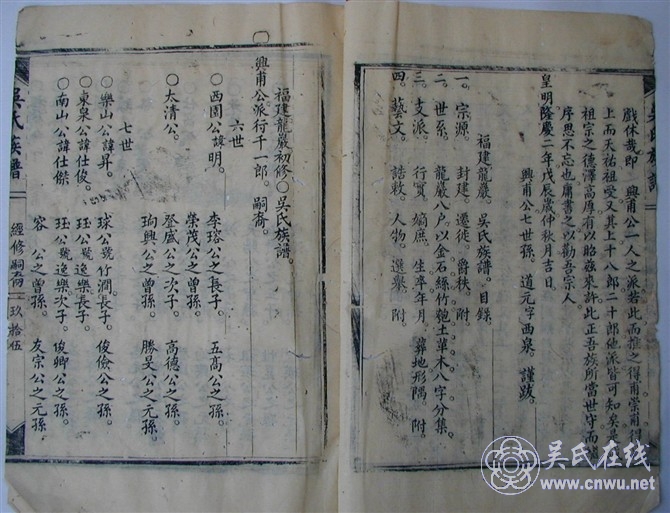 戲休哉即 興甫公一人之派若此而推之得甫崇甫
上而天祐祖愛又其上十八郎二十郎他派皆可知矣
祖宗之德澤高厚有以昭茲來許此正吾族所當世守而
序思不忘也庸書之以勸吾宗人
皇明隆慶二年戊辰歲仲秋月吉日
興甫公七世孫 道元字西泉 謹跋
福建龍巖 吳氏族譜 目錄
一 宗源 封建 遷徙 爵秩 附
二 世系 龍巖八户以金石絲竹匏土革木八字分集
三 支派 行實 嫡庶 生卒年月 葬地形隅 附
四 藝文 誥敕 人物 選舉 附
吳氏族譜
福建龍巖初修○吳氏族譜
興甫公派行千一郎 嗣裔
六世
○西園公諱明 李瑢公之長子 五高公之孫
榮茂公之曾孫
○太清公 登盛公之次子 高德公之孫
珣興公之曾孫 勝旻公之元孫
七世
○樂山公諱昇 球公號竹澗長子 俊儉公之孫
○東泉公諱仕俊 珏公號逸樂長子
○南山公諱仕傑 珏公號逸樂次子 俊卿公之孫
容 公之曾孫 友宗公之元孫
吳氏族譜
經修嗣
玖拾伍
吴氏在线
www.cnwu.net